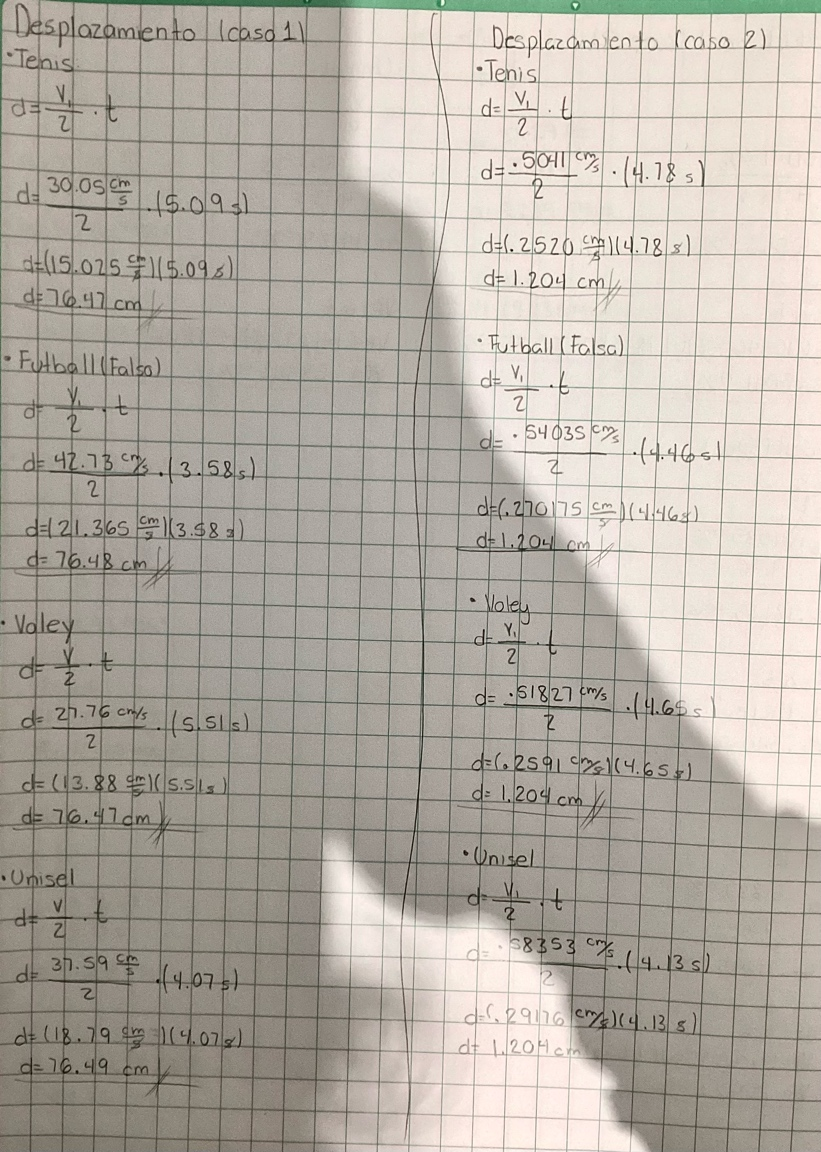 Desplazamiento (caso 1)
• Tenis
d= V₁/2 · t
d= 30.05 cm/s / 2 · (5.09 s)
d=(15.025 cm/s)(5.09 s)
d= 76.47 cm
• Futball (Falso)
d= V₁/2 · t
d= 42.73 cm/s / 2 · (3.58 s)
d=(21.365 cm/s)(3.58 s)
d= 76.48 cm
• Voley
d= V/2 · t
d= 27.76 cm/s / 2 · (5.51 s)
d= (13.88 cm/s)(5.51 s)
d= 76.47 cm
• Unisel
d= V/2 · t
d= 37.59 cm/s / 2 · (4.07 s)
d= (18.79 cm/s)(4.07 s)
d= 76.49 cm
Desplazamiento (caso 2)
• Tenis
d= V₁/2 · t
d= .5041 cm/s / 2 · (4.78 s)
d=(.2520 cm/s)(4.78 s)
d= 1.204 cm
• Futball (Falsa)
d= V₁/2 · t
d= .54035 cm/s / 2 · (4.46 s)
d=(.270175 cm/s)(4.46 s)
d= 1.204 cm
• Voley
d= V₁/2 · t
d= .51827 cm/s / 2 · (4.65 s)
d=(.2591 cm/s)(4.65 s)
d= 1.204 cm
• Unisel
d= V₁/2 · t
d= .58353 cm/s / 2 · (4.13 s)
d=(.29176 cm/s)(4.13 s)
d= 1.204 cm